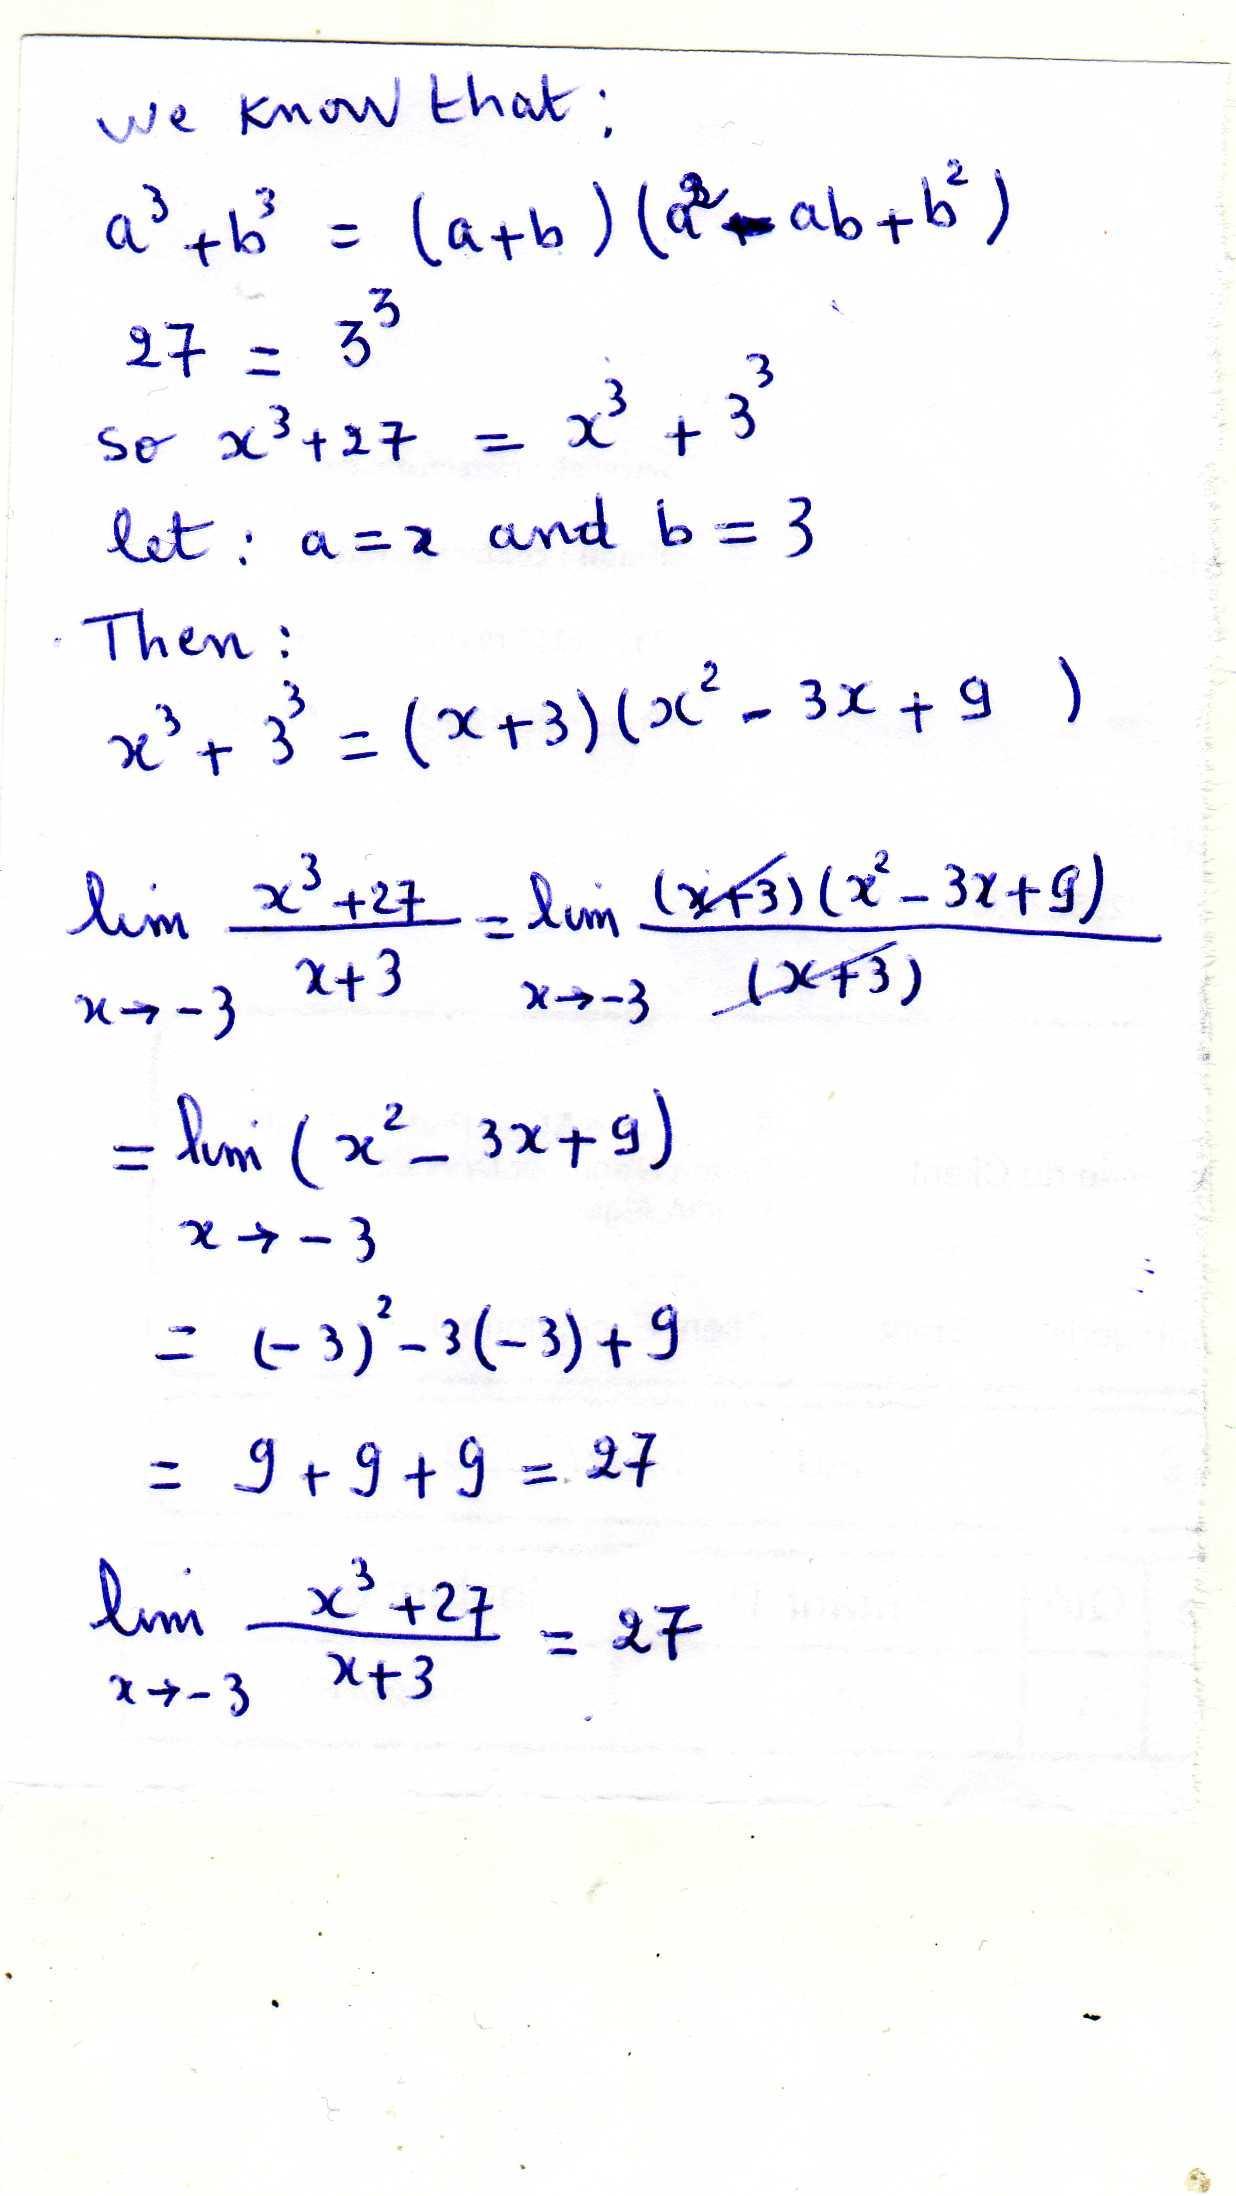 we know that:
a³+b³ = (a+b)(a²-ab+b²)
27 = 3³
so x³+27 = x³+3³
let: a=x and b=3
Then:
x³+3³=(x+3)(x²-3x+9 )
lim x³+27 = lim (x+3)(x²-3x+9)
x→-3 x+3 x→-3 (x+3)
= lim (x²-3x+9)
x→-3
= (-3)²-3(-3)+9
= 9+9+9=27
lim x³+27 = 27
x→-3 x+3